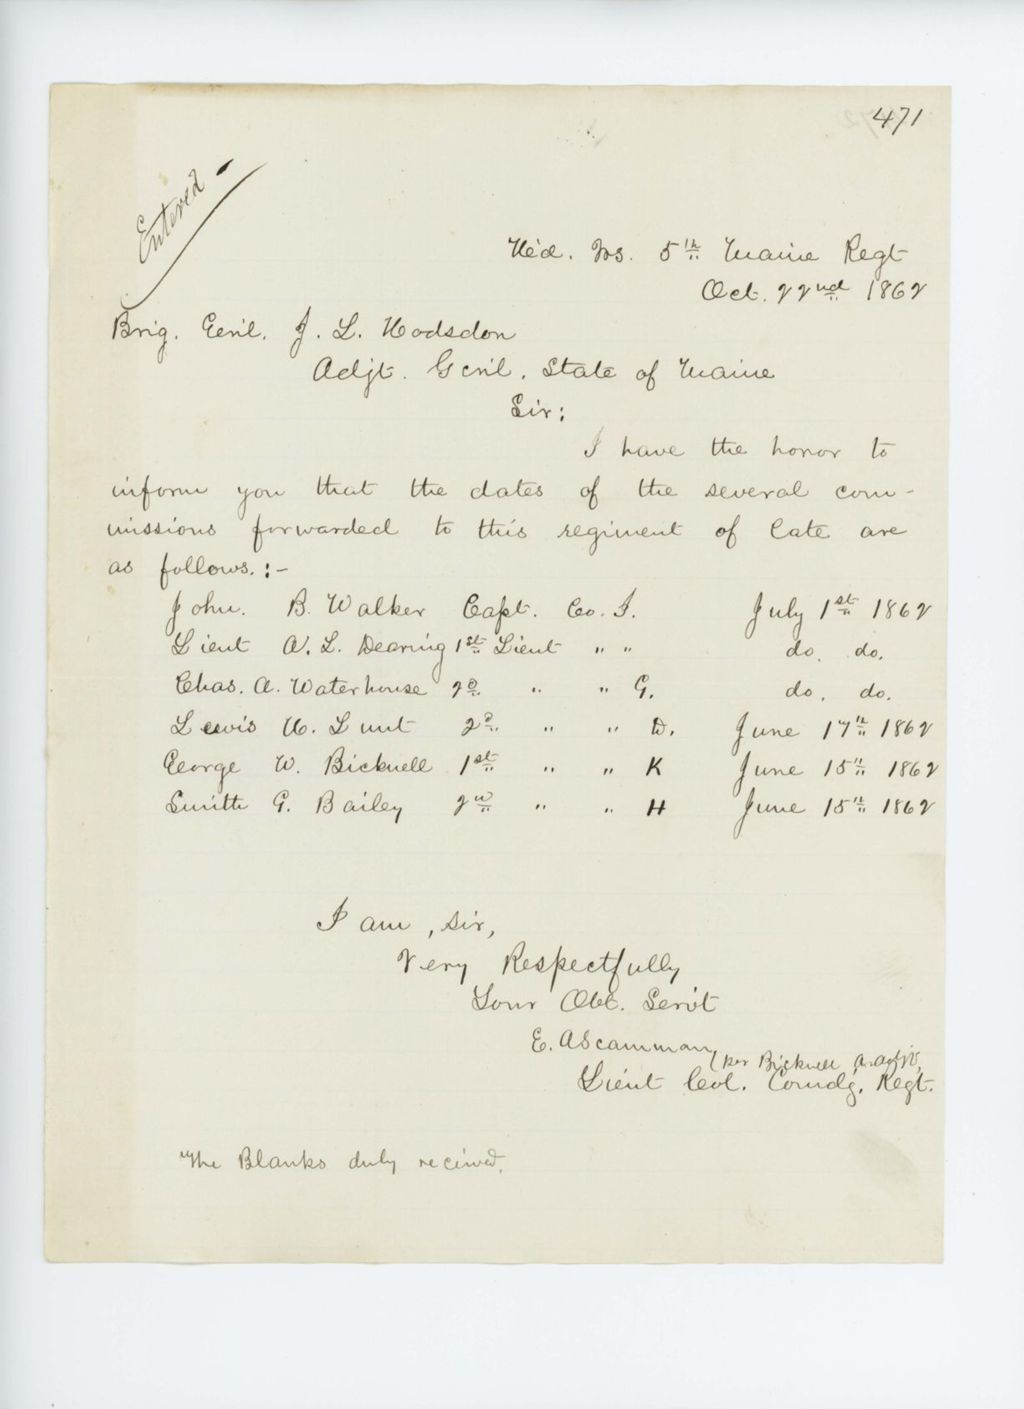 471
Entered
Hed. Qrs. 5th Maine Regt
Oct. 22nd 1862
Brig. Genl. J. L. Hodsdon
Adjt. Genl. State of Maine
Sir:
I have the honor to
inform you that the dates of the several com-
missions forwarded to this regiment of late are
as follows. :-
John. B. Walker Capt. Co. I. July 1st 1862
Lieut A. L. Dearing 1st Lieut " " do. do.
Chas. A. Waterhouse 2d " " G. do. do.
Lewis H. Lunt 2d " " D. June 17th 1862
George W. Bicknell 1st " " K June 15th 1862
Smith G. Bailey 2nd " " H June 15th 1862
I am, sir,
Very Respectfully
Your Obt. Servt
E. A Scamman
(per Bicknell A. Adjt,
Lieut Col. Comdg. Regt.
The Blanks duly recieved.